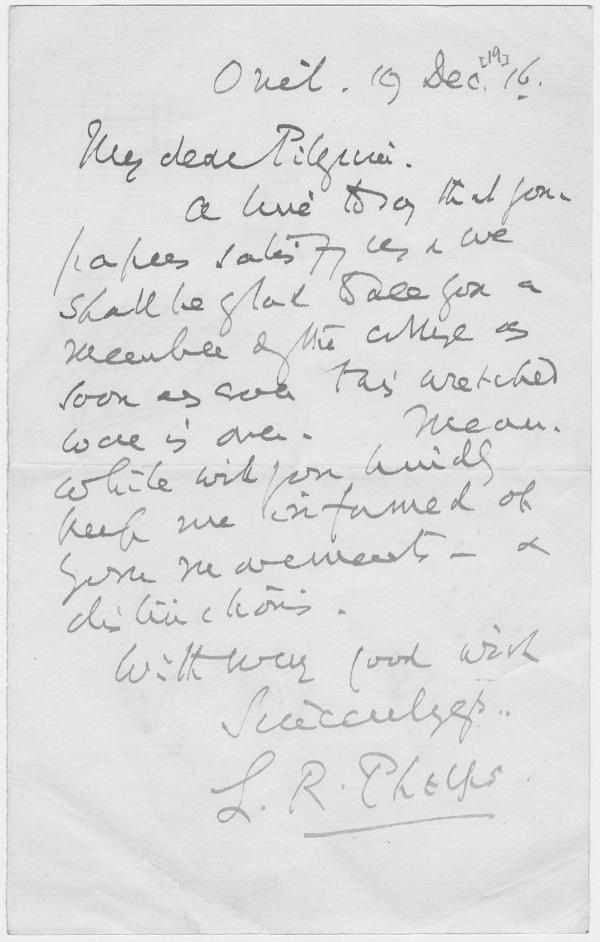 Oriel. 19 Dec. [19]16.
My dear Pilgrim.
A line to say that your
papers satisfy us & we
shall be glad to see you a
member of the college as
soon as ever this wretched
war is over. Mean.
while will you kindly
keep me informed of
your movements – &
distinctions.
With every good wish
Sincerely yrs..
L. R. Phelps